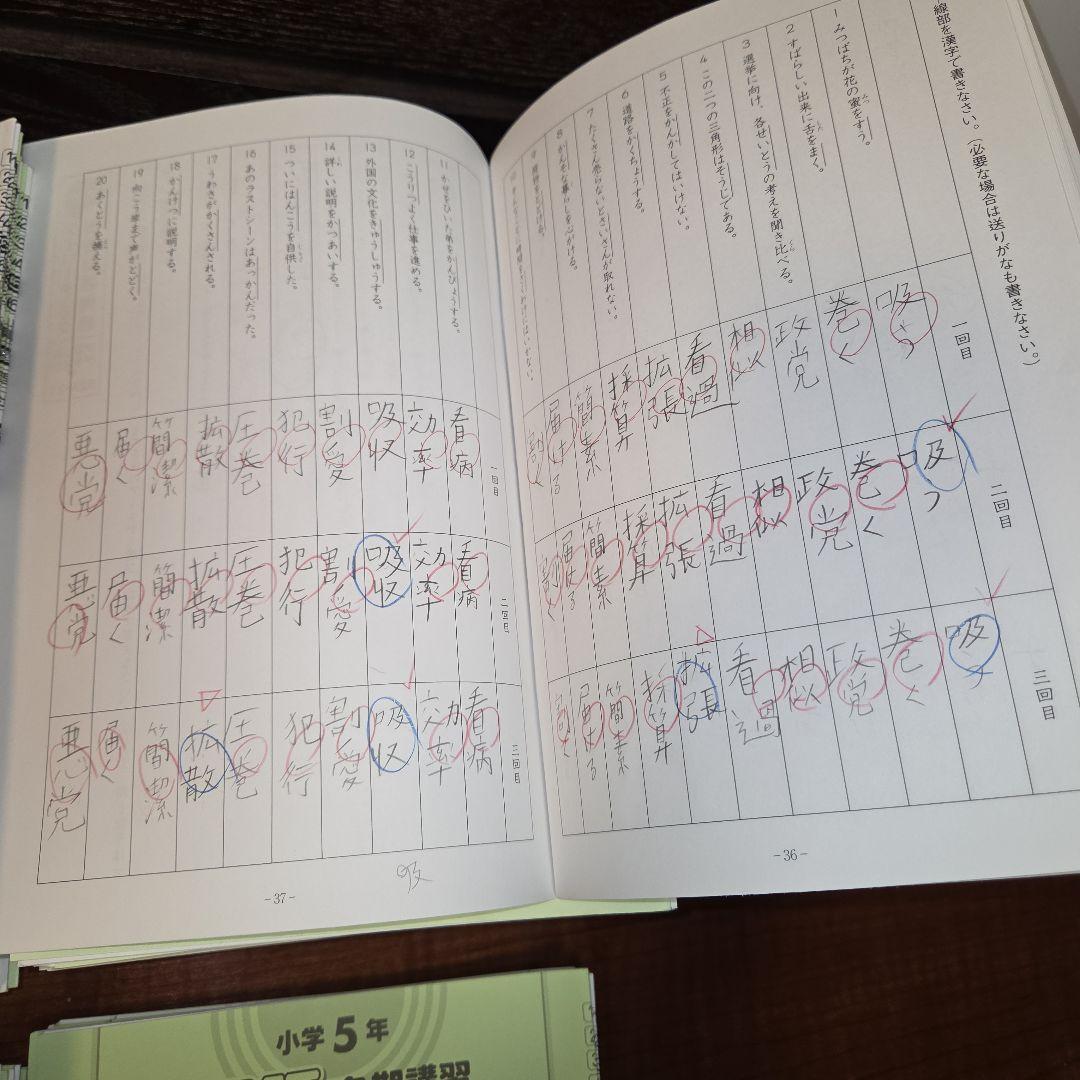 線部を漢字で書きなさい。（必要な場合は送りがなも書きなさい。）
1 みつばちが花の蜜をすう。
2 すばらしい出来に舌をまく。
3 選挙に向け、各せいとうの考えを聞き比べる。
4 この二つの三角形はそうじてある。
5 不正をかんかしてはいけない。
6 道路をかくちょうする。
7 たくさん売らないとさいさんが取れない。
8 かんそな暮らしを心がける。
一回目
吸う
巻く
政党
相似
看過
拡張
採算
簡素
届ける
二回目
吸う
巻く
政党
相似
看過
拡張
採算
簡素
届ける
三回目
吸う
巻く
政党
相似
看過
拡張
採算
簡素
届ける
-36-
11 かぜをひいた弟をかんびょうする。
12 こうりつよく仕事を進める。
13 外国の文化をきゅうしゅうする。
14 詳しい説明をかつあいする。
15 ついにはんこうを自供した。
16 あのラストシーンはあっかんだった。
17 うわさがかくさんされる。
18 かんけつに説明する。
19 向こう岸まで声がとどく。
20 あくとうを捕える。
一回目
看病
効率
吸収
割愛
犯行
圧巻
拡散
簡潔
届く
悪党
二回目
看病
効率
吸収
割愛
犯行
圧巻
拡散
簡潔
届く
悪党
三回目
看病
効率
吸収
割愛
犯行
圧巻
拡散
簡潔
届く
悪党
吸
-37-
小学5年
期講習